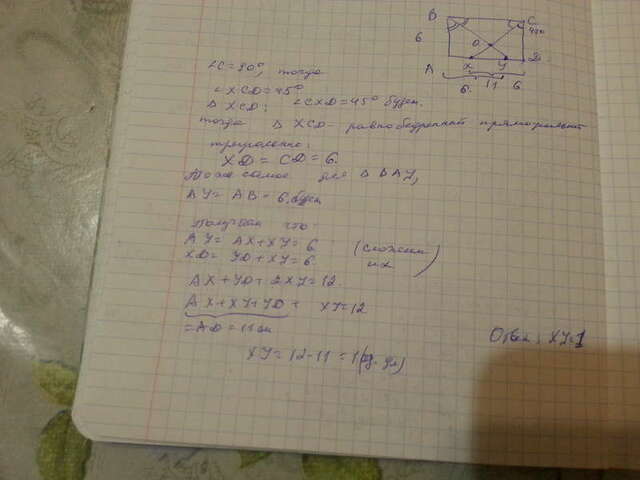 B C
6 O 45°
A X Y D
6 11 6
∠C=90°, тогда
∠XCD=45°
△ XCD: ∠CXD=45° будет.
тогда △ XCD- равнобедренный прямоугольный
треугольник:
XD = CD = 6.
Тоже самое для △ BAY,
AY= AB = 6. будет
Получаем что:
AY= AX+XY= 6 (сложим
XD= YD+XY= 6. их)
AX+YD+2XY=12.
AX+XY+YD + XY=12
=AD=11см Ответ: XY=1
XY=12-11=1(ед. дл)